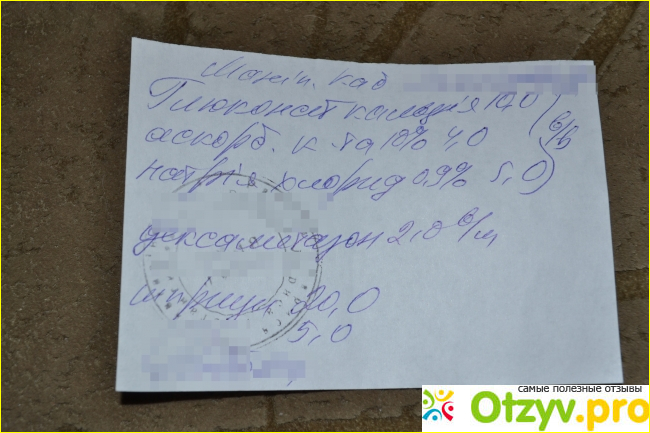 Маніп. каб
Глюконат кальція 10,0 в/в
аскорб. к-та 10% 4,0
натрія хлорид 0,9% 5,0
дексаметазон 2,0 в/м
шприцы 20,0
5,0
самые полезные отзывы
Otzyv.pro